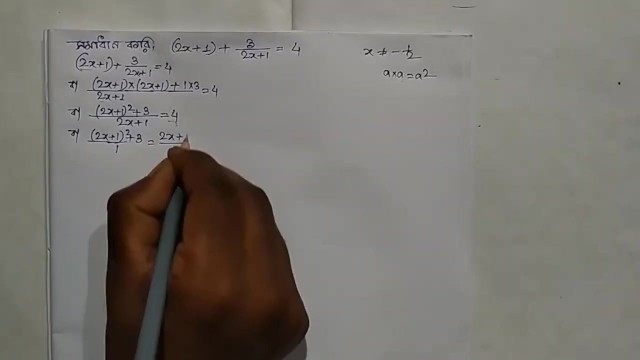 সমাধান করি। (2x+1) + 3/(2x+1) = 4
x ≠ -1/2
(2x+1) + 3/(2x+1) = 4
a×a = a²
বা ((2x+1)×(2x+1) + 1×3)/(2x+1) = 4
বা ((2x+1)² + 3)/(2x+1) = 4
বা ((2x+1)² + 3)/1 = 2x+